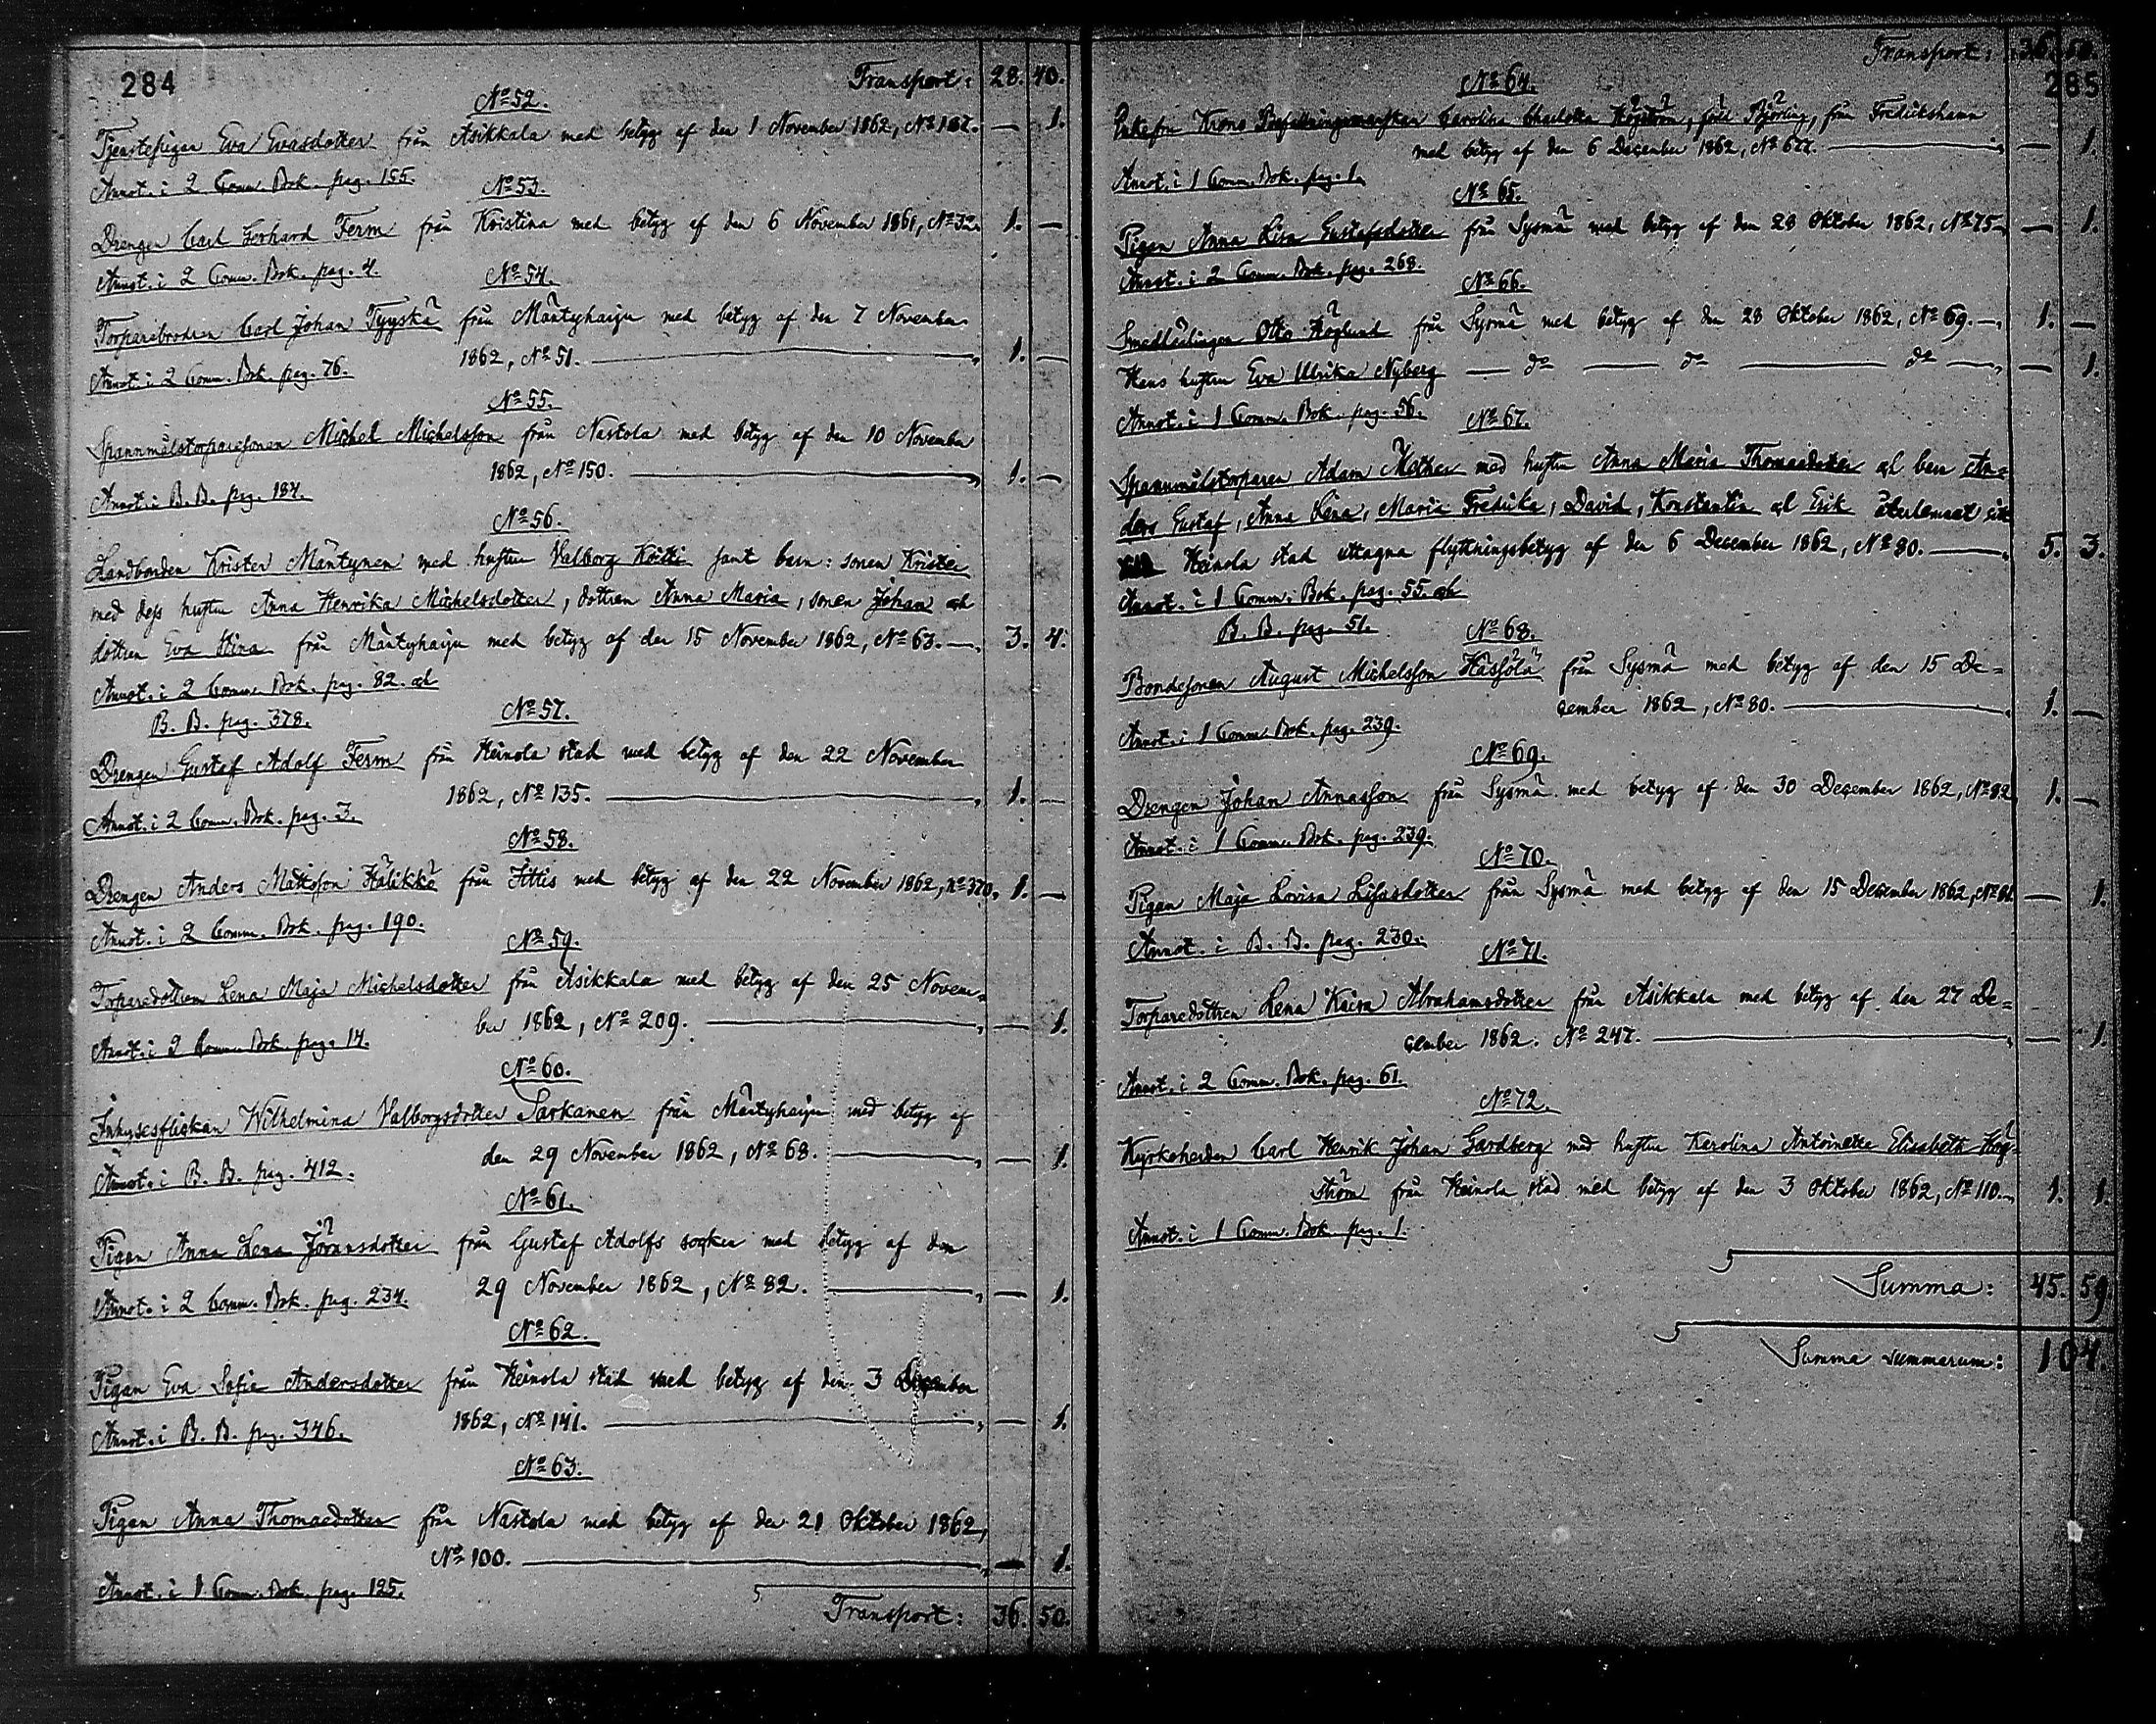 284
Transport: 28. 40.
No 52.
Tjenstepigan Eva Evasdotter från Asikkala med betyg af den 1 November 1862, No 187. — 1.
Annot. i 2 Comm. Bok. pag. 155.
No 53.
Drengen Carl Gerhard Ferm från Kristina med betyg af den 6 November 1861, No 1. —
Annot. i 2 Comm. Bok. pag. 4.
No 54.
Torparebrodren Carl Johan Tyyskä från Mäntyharju med betyg af den 7 November
1862, No 51. — 1. —
Annot. i 2 Comm. Bok. pag. 76.
No 55.
Spannmålstorparesonen Michel Michelsson från Nastola med betyg af den 10 November
1862, No 150. — 1. —
Annot. i B. B. pag. 187.
No 56.
Landbonden Krister Mäntynen med hustru Valborg samt barn: sonen Krister
med dess hustru Anna Henrika Michelsdotter, dottren Anna Maria, sonen Johan och
dottren Eva Stina från Mäntyharju med betyg af den 15 November 1862, No 63. — 3. 4.
Annot. i 2 Comm. Bok. pag. 82. och
B. B. pag. 378.
No 57.
Drengen Gustaf Adolf Ferm från Heinola stad med betyg af den 22 November
1862, No 135. — 1. —
Annot. i 2 Comm. Bok. pag. 3.
No 58.
Drengen Anders Mattsson Hälikkä från Jittis med betyg af den 22 November 1862, No 370. 1. —
Annot. i 2 Comm. Bok. pag. 190.
No 59.
Torparedottren Lena Maja Michelsdotter från Asikkala med betyg af den 25 Novem=
ber 1862, No 209. — — 1.
Annot. i 2 Comm. Bok. pag. 14.
No 60.
Inhysesflickan Wilhelmina Valborgsdotter Sarkanen från Mäntyharju med betyg af
den 29 November 1862, No 68. — — 1.
Annot. i B. B. pag. 412.
No 61.
Pigan Anna Lena Jöransdotter från Gustaf Adolfs socken med betyg af den
29 November 1862, No 82. — — 1.
Annot. i 2 Comm. Bok. pag. 234.
No 62.
Pigan Eva Sofia Andersdotter från Heinola stad med betyg af den 3 December
1862, No 141. — — 1.
Annot. i B. B. pag. 346.
No 63.
Pigan Anna Thomaedotter från Nastola med betyg af den 21 Oktober 1862,
No 100. — — 1.
Annot. i 1 Comm. Bok. pag. 125.
Transport: 36. 50.
Transport: 36. 50.
285
No 64.
Enkefru Krono Carolina Charlotta Högström, född Björling, från Fredrikshamn
med betyg af den 6 December 1862, No 677. — — 1.
Annot. i 1 Comm. Bok. pag. 1.
No 65.
Pigan Anna Lisa Gustafsdotter från Sysmä med betyg af den 28 Oktober 1862, No 75 — — 1.
Annot. i 2 Comm. Bok. pag. 268.
No 66.
Smedlärlingen Otto Höglund från Sysmä med betyg af den 28 Oktober 1862, No 69. — 1. —
Hans hustru Eva Ulrika Nyberg — do — do — do — — 1.
Annot. i 1 Comm. Bok. pag. 56.
No 67.
Spannmålstorparen Adam Mether med hustru Anna Maria Thomaedotter och barn An=
ders Gustaf, Anna Lena, Maria Fredrika, David, Konstantin och Erik återlemnat sitt
Heinola stad uttagna flyttningsbetyg af den 6 December 1862, No 80. — 5. 3.
Annot. i 1 Comm. Bok. pag. 55. och
B. B. pag. 51.
No 68.
Bondesonen August Michelsson från Sysmä med betyg af den 15 De=
cember 1862, No 80. — 1. —
Annot. i 1 Comm. Bok. pag. 239.
No 69.
Drengen Johan Annasson från Sysmä med betyg af den 30 December 1862, No 82 1. —
Annot. i 1 Comm. Bok. pag. 239.
No 70.
Pigan Maja Lovisa Lisasdotter från Sysmä med betyg af den 15 December 1862, No 81. — 1.
Annot. i B. B. pag. 230.
No 71.
Torparedottren Lena Kaisa Abrahamsdotter från Asikkala med betyg af den 27 De=
cember 1862. No 247. — — 1.
Annot. i 2 Comm. Bok. pag. 61.
No 72.
Kyrkoherden Carl Henrik Johan Gardberg med hustru Karolina Antoinette Elisabeth Hög=
ström från Heinola stad med betyg af den 3 Oktober 1862, No 110. — 1. 1.
Annot. i 1 Comm. Bok. pag. 1.
Summa: 45. 59
Summa summarum: 104.